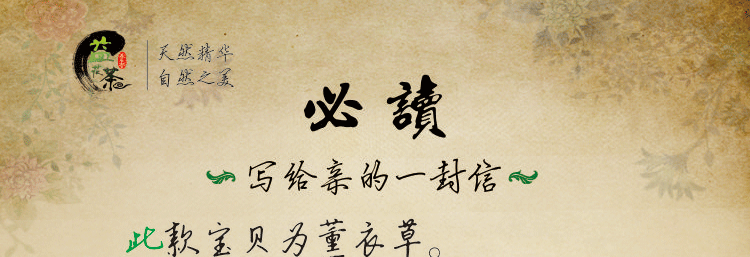 益
茶
天然精华
自然之美
必讀
写给亲的一封信
此款宝贝为薰衣草。